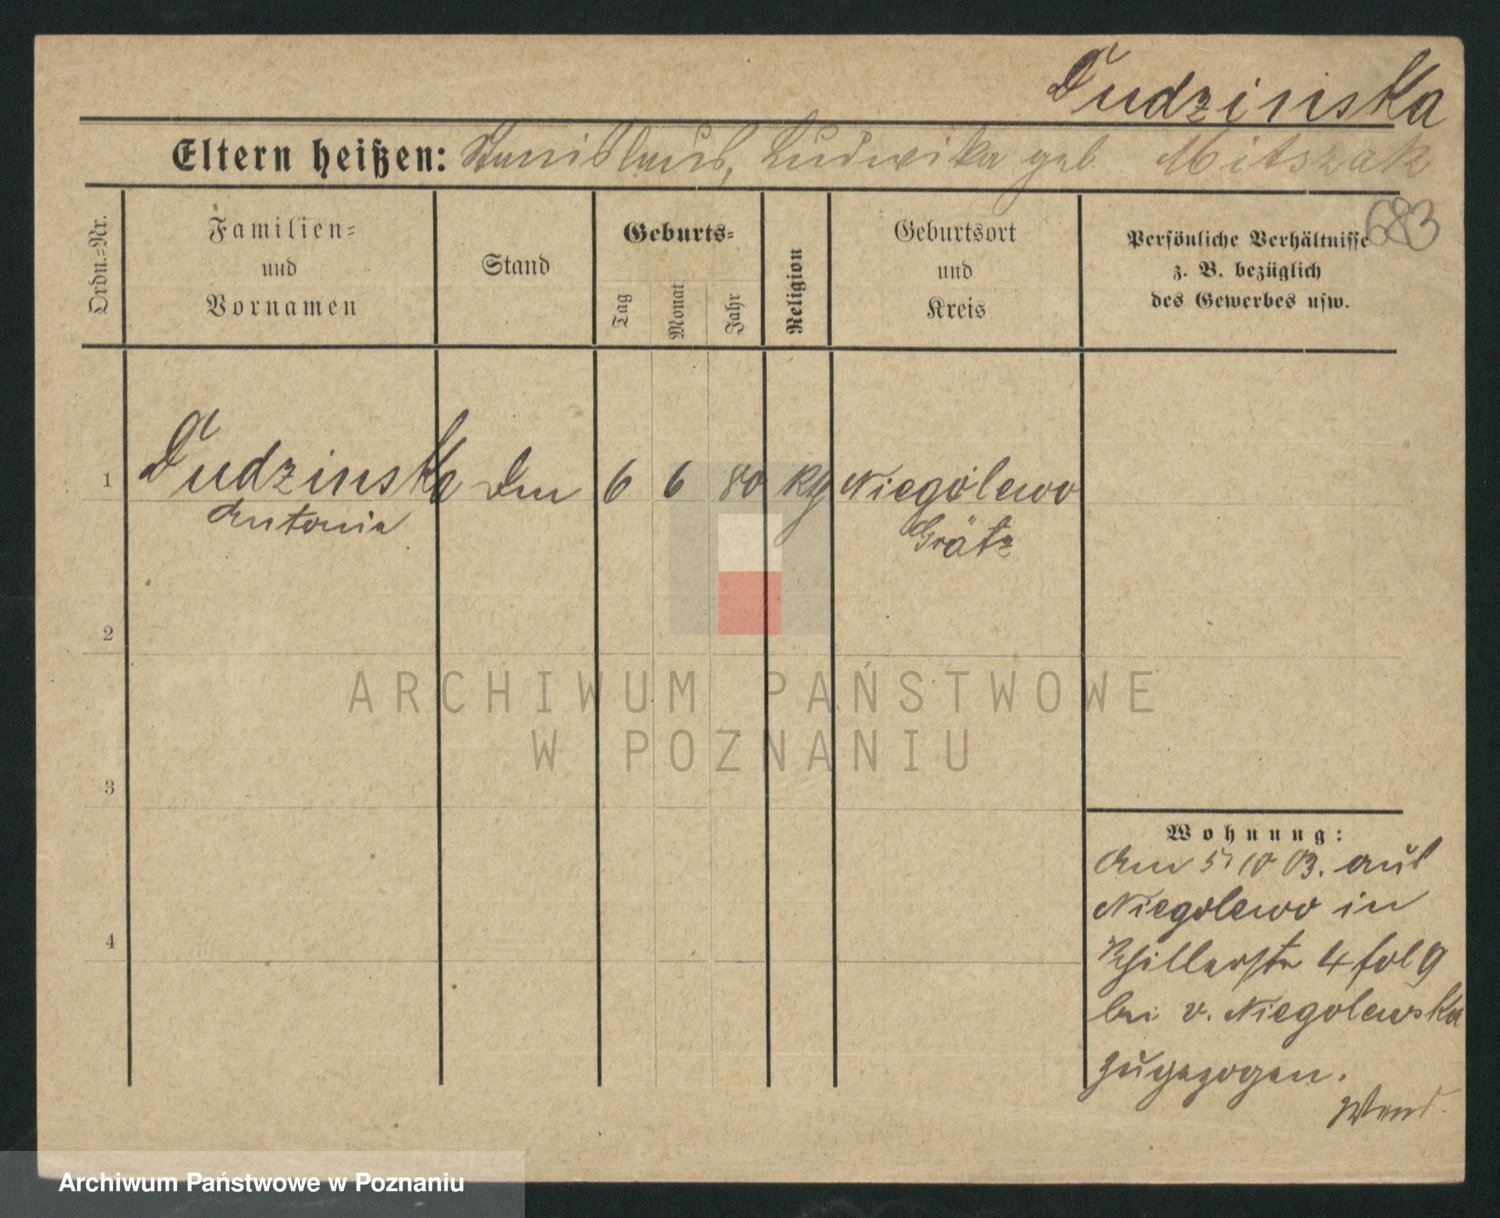 Dudzinska
Eltern heißen: Stanislaus, Ludwika geb. Mitszak
683
Ordn.-Nr.
Familien-
und
Vornamen
Stand
Geburts-
Tag
Monat
Jahr
Religion
Geburtsort
und
Kreis
Persönliche Verhältnisse
z. B. bezüglich
des Gewerbes usw.
1 Dudzinska 6 6 80 kth Niegolewo
Antonie Grätz
2
ARCHIWUM PAŃSTWOWE
W POZNANIU
3
Wohnung:
Am 5/10 03. aus
Niegolewo in
4
Schillerstr 4
bei v. Niegolewska
zugezogen.
Archiwum Państwowe w Poznaniu